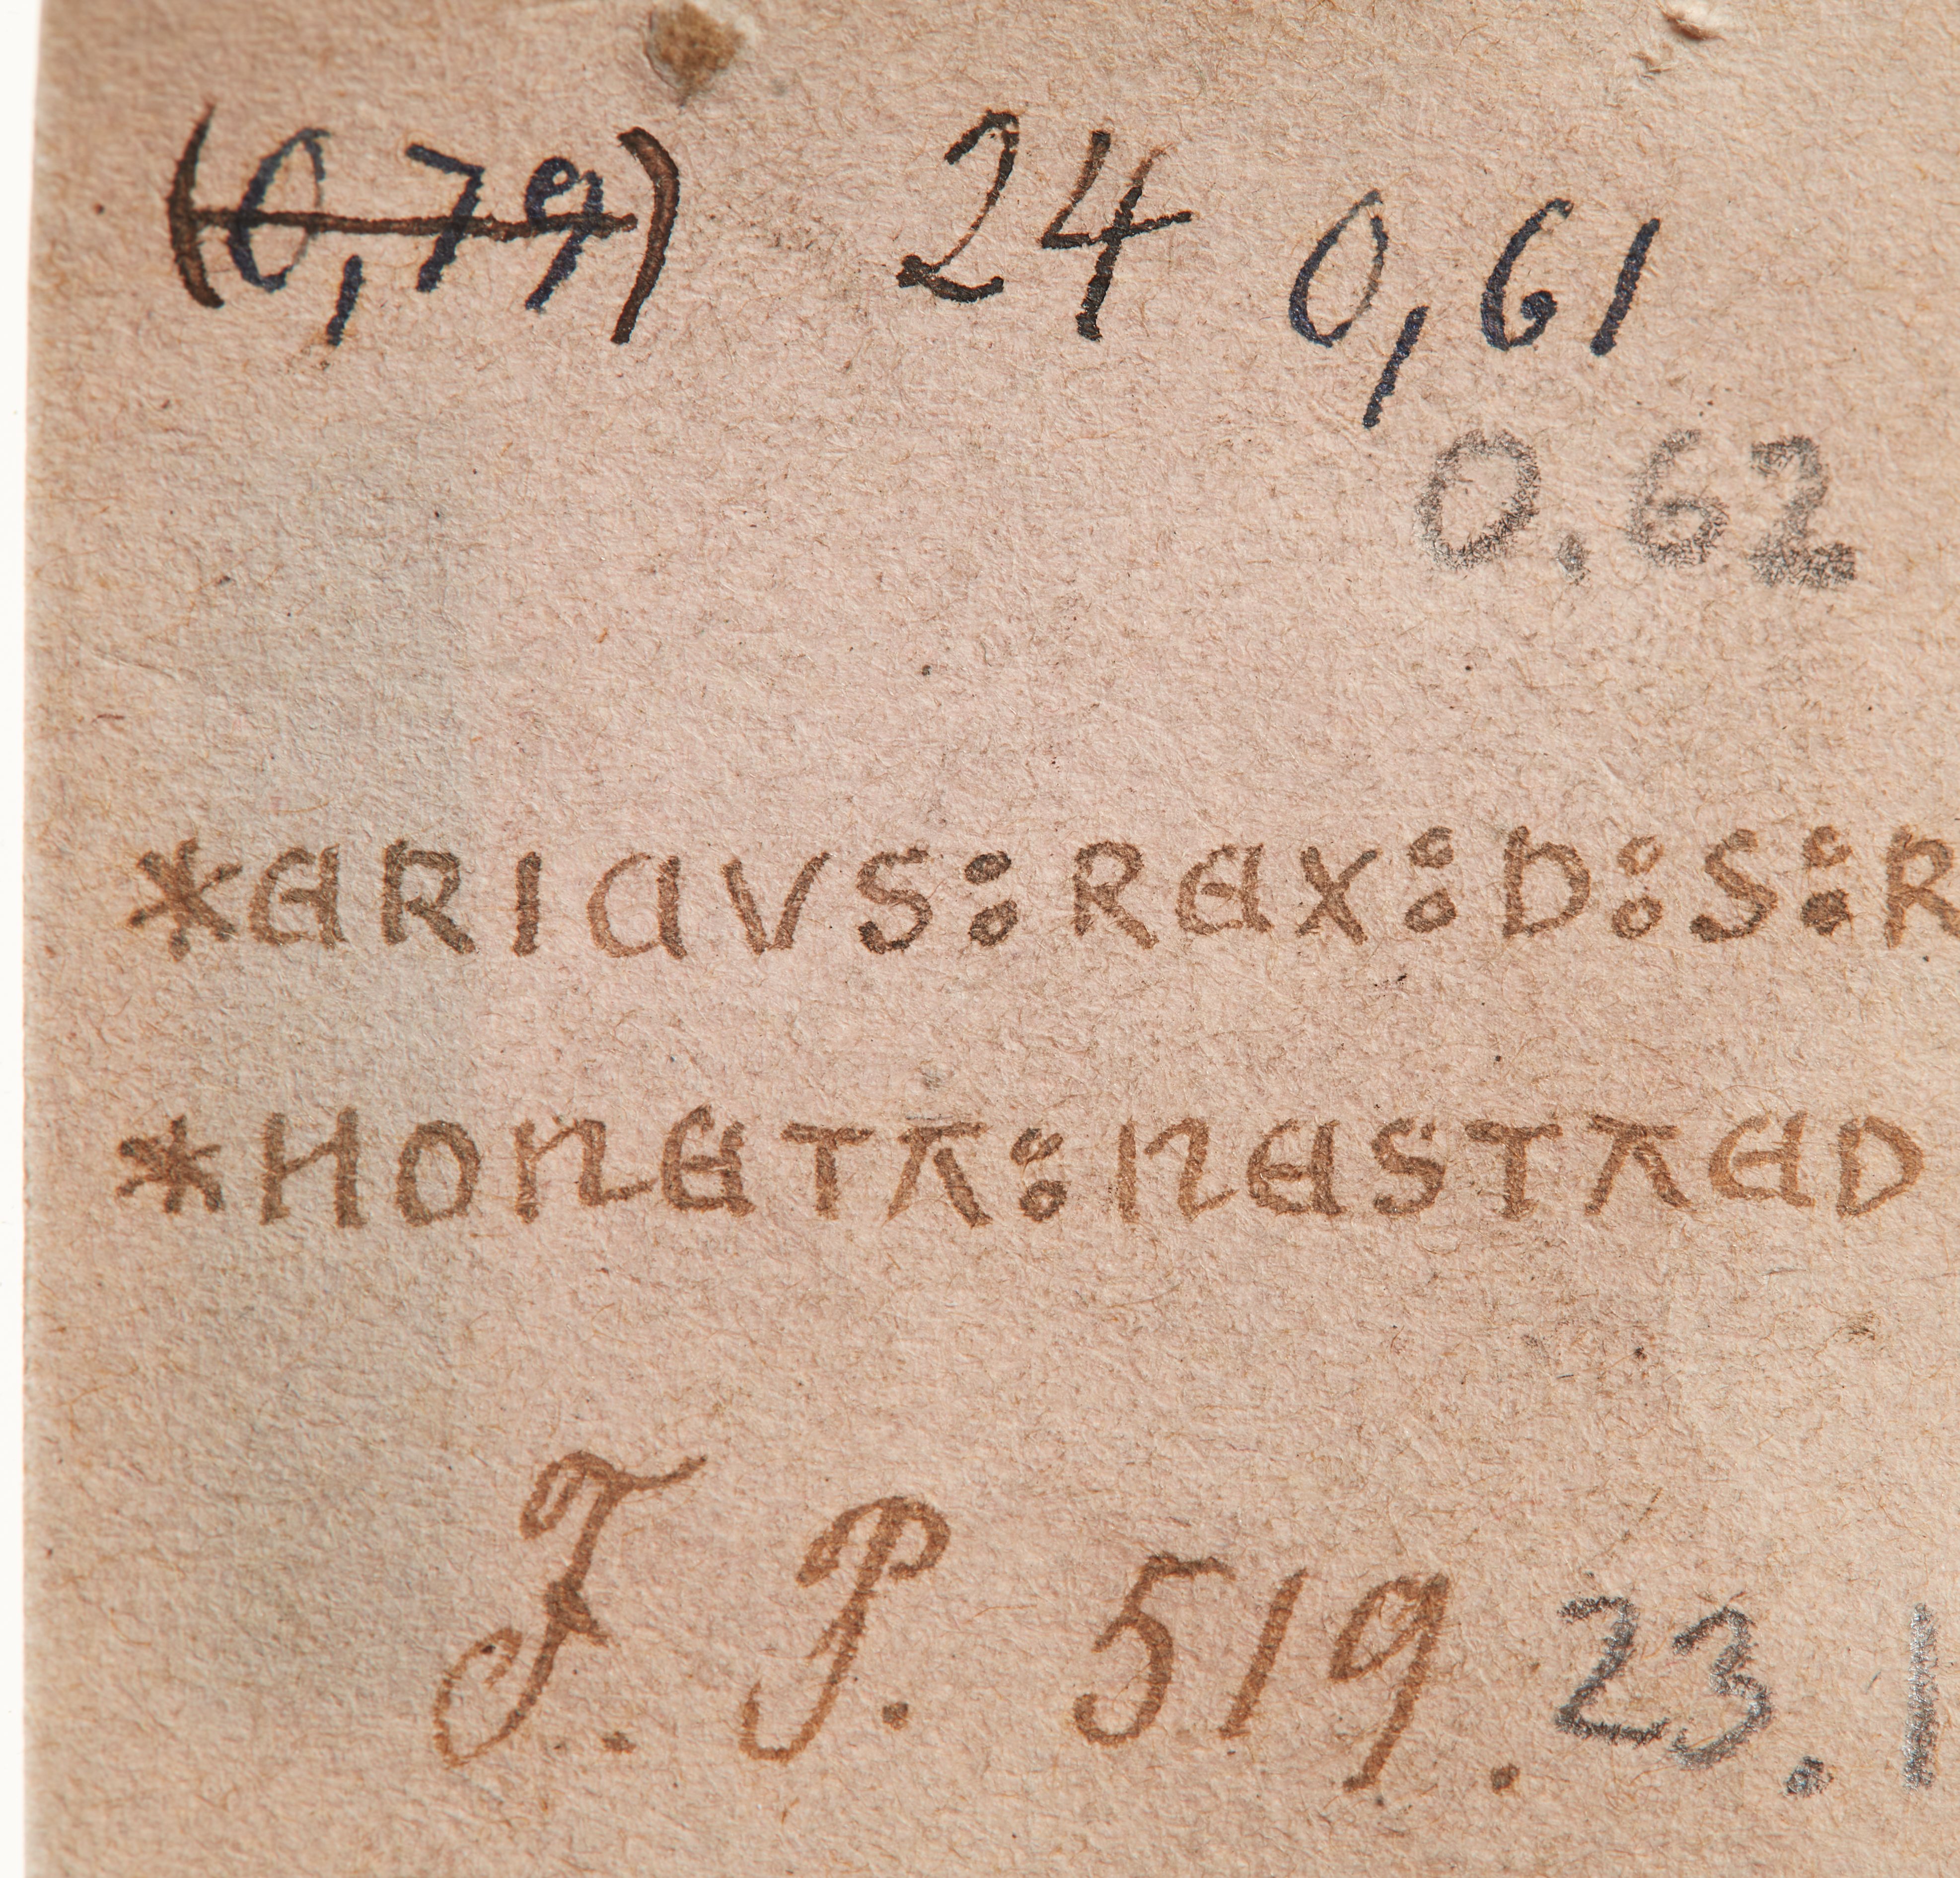 (0,79) 24 0,61
0,62
*ERICVS:REX:D:S:R
*MONETA:NESTVED
F. P. 519. 23.1